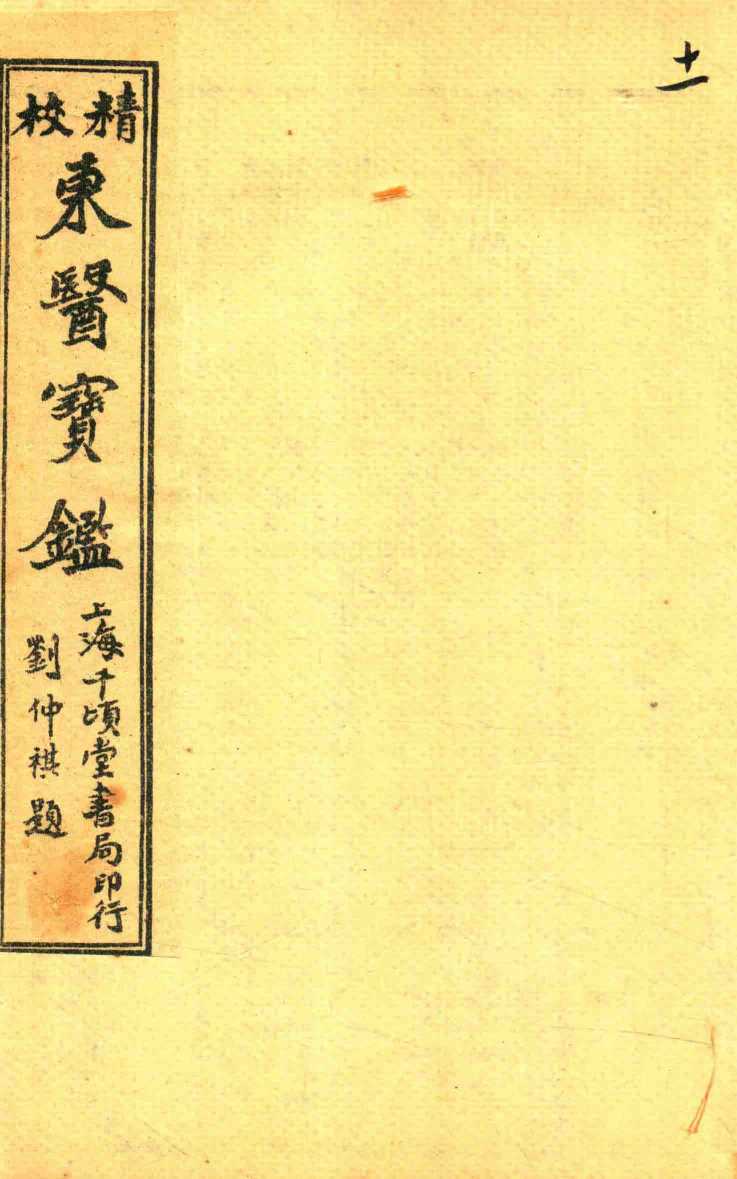 十一
精校
東醫寳鑑
上海千頃堂書局印行
劉仲祺題